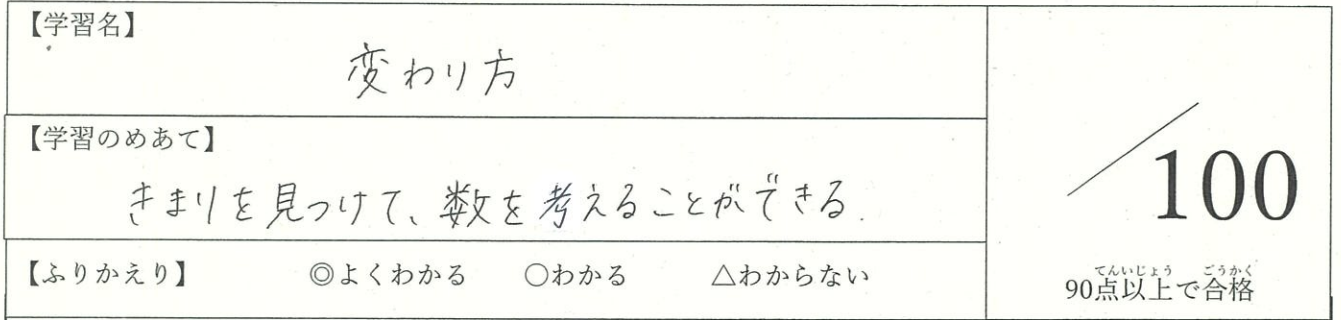 【学習名】
変わり方
【学習のめあて】
きまりを見つけて、数を考えることができる.
【ふりかえり】 ◎よくわかる ○わかる △わからない
／100
90点以上で合格
てんいじょう ごうかく